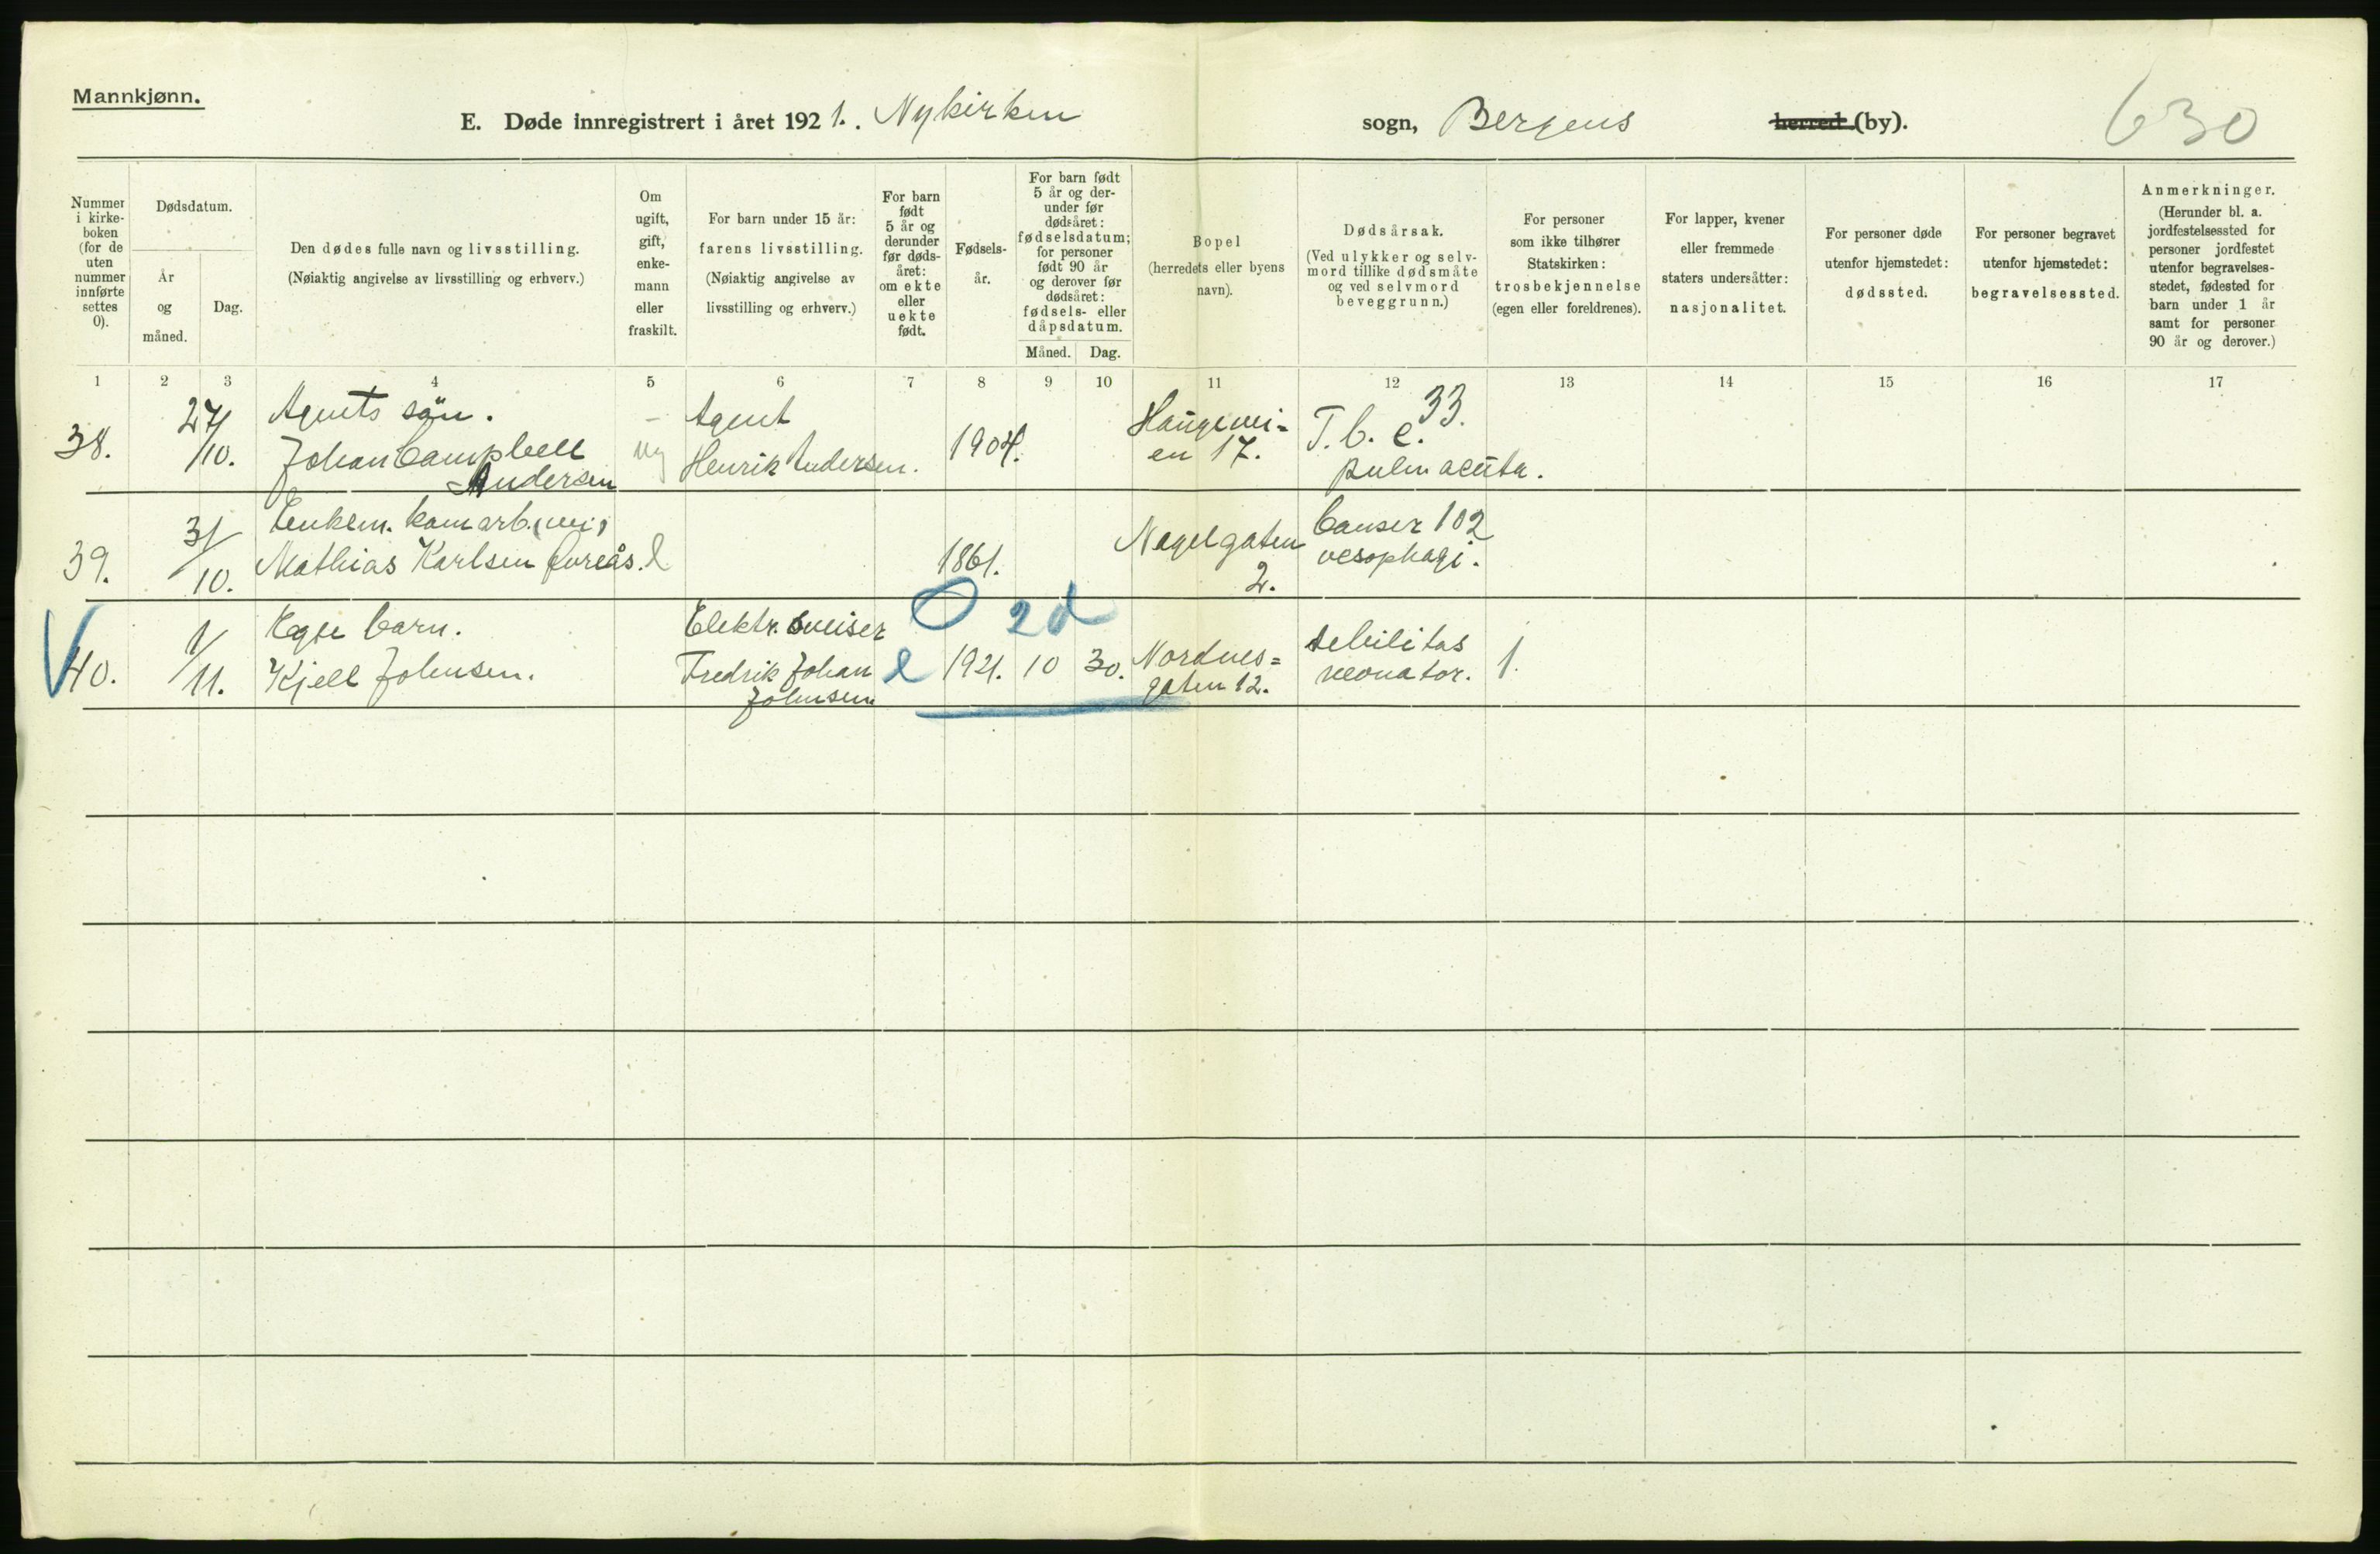 Mannkjønn.
E. Døde innregistrert i året 1921. Nykirken sogn, Bergens herred (by).
630
Nummer i kirkeboken (for de uten nummer innførte settes 0).
Dødsdatum.
År og måned.
Dag.
Den dødes fulle navn og livsstilling.
(Nøiaktig angivelse av livsstilling og erhverv.)
Om ugift, gift, enkemann eller fraskilt.
For barn under 15 år:
farens livsstilling.
(Nøiaktig angivelse av livsstilling og erhverv.)
For barn født 5 år og derunder før dødsåret: om ekte eller uekte født.
Fødselsår.
For barn født 5 år og derunder før dødsåret: fødselsdatum; for personer født 90 år og derover før dødsåret: fødsels- eller dåpsdatum.
Måned. Dag.
Bopel
(herredets eller byens navn).
Dødsårsak.
(Ved ulykker og selvmord tillike dødsmåte og ved selvmord beveggrunn.)
For personer som ikke tilhører Statskirken:
trosbekjennelse
(egen eller foreldrenes).
For lapper, kvener eller fremmede staters undersåtter:
nasjonalitet.
For personer døde utenfor hjemstedet:
dødssted.
For personer begravet utenfor hjemstedet:
begravelsessted.
Anmerkninger.
(Herunder bl. a. jordfestelsessted for personer jordfestet utenfor begravelsesstedet, fødested for barn under 1 år samt for personer 90 år og derover.)
1 2 3 4 5 6 7 8 9 10 11 12 13 14 15 16 17
38.
27/10.
Agents sön.
Johan Campbell
Andersen
-
ug
Agent
Henrik Andersen.
1904.
Haugevei-
en 17.
33.
T.b.c.
pulm acuta.
39.
31/10.
Enkem.
Mathias Karlsen
1861.
Nagelgaten
2.
Canser 102
oesophagi.
40.
1/11.
barn.
Kjell Johnsen.
Elektr. sveiser
Fredrik Johan
Johnsen
e
O 2d
1921. 10 30.
Nordnes-
gaten 12.
debilitas
neonator.
1.